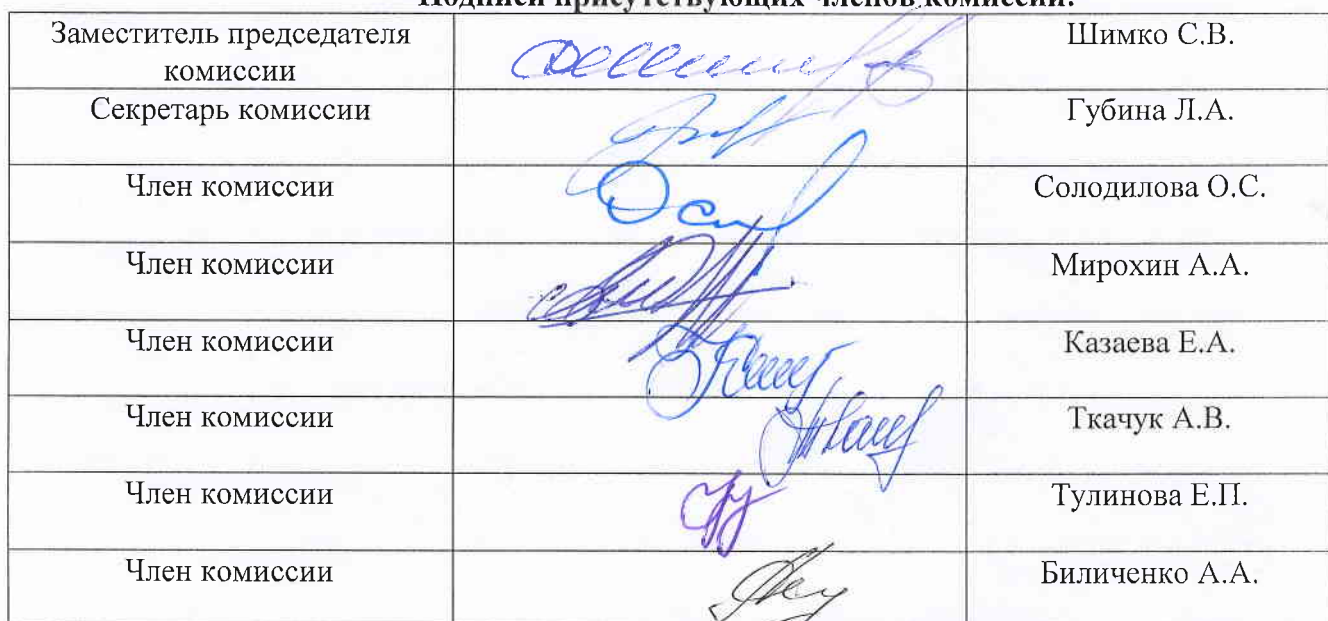 Подписи присутствующих членов комиссии:
Заместитель председателя
комиссии
Шимко С.В.
Секретарь комиссии
Губина Л.А.
Член комиссии
Солодилова О.С.
Член комиссии
Мирохин А.А.
Член комиссии
Казаева Е.А.
Член комиссии
Ткачук А.В.
Член комиссии
Тулинова Е.П.
Член комиссии
Биличенко А.А.